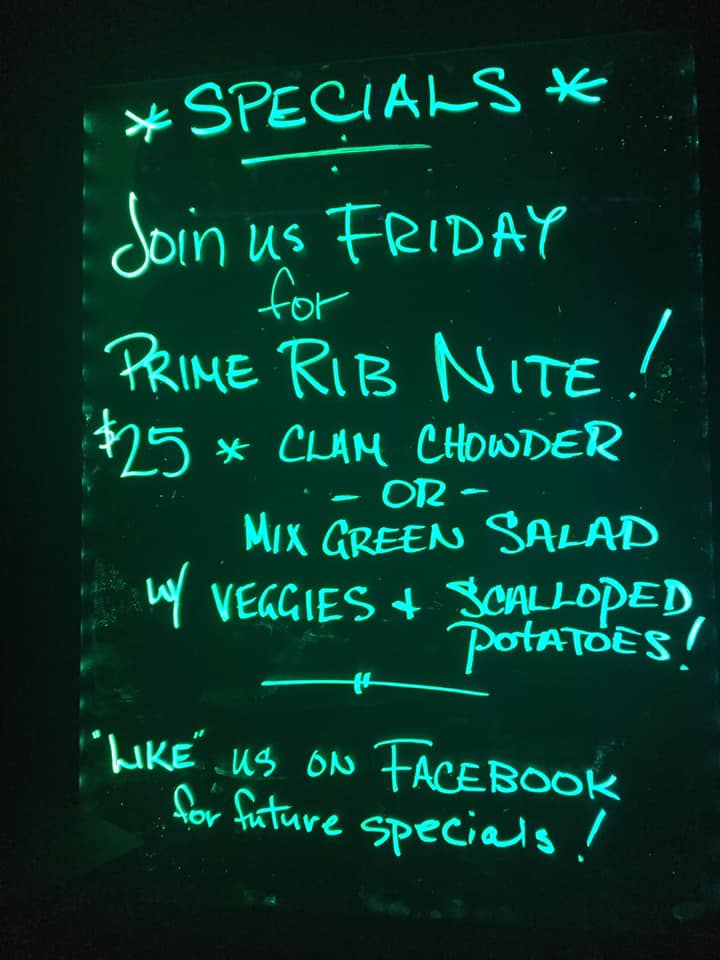 * SPECIALS *
Join us FRIDAY
for
PRIME RIB NITE!
$25 * CLAM CHOWDER
- OR -
MIX GREEN SALAD
w/ VEGGIES + SCALLOPED
POTATOES!
"LIKE" US ON FACEBOOK
for future specials!